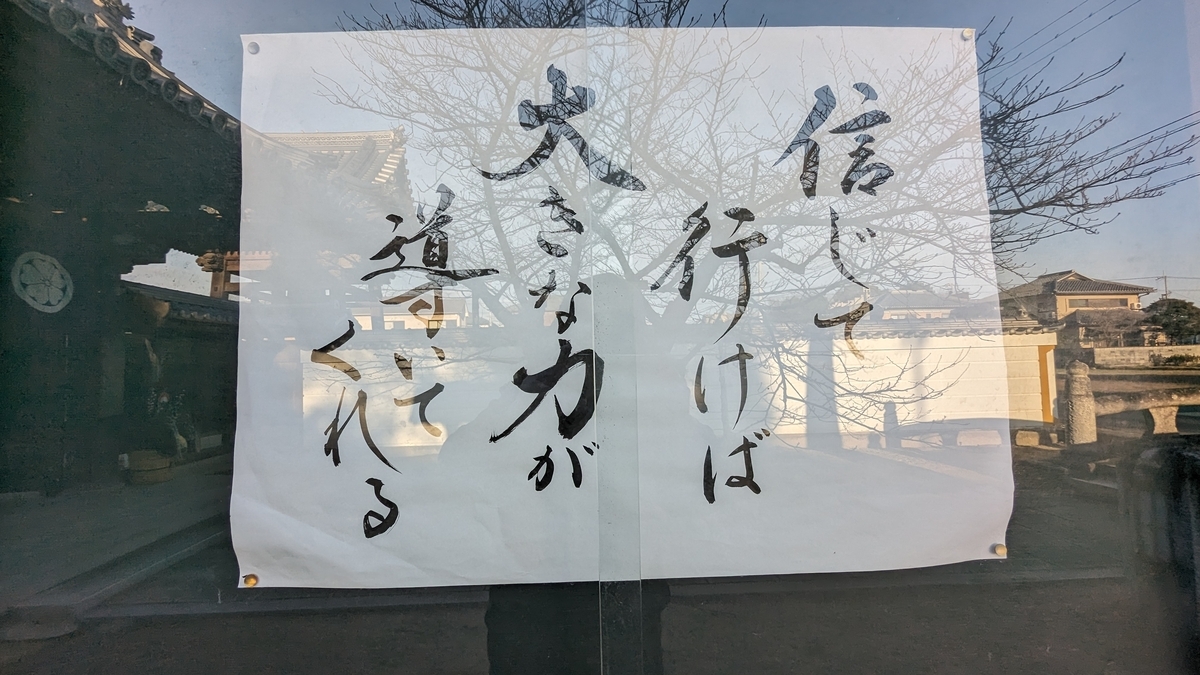 信じて
行けば
大きな力が
導いて
くれる